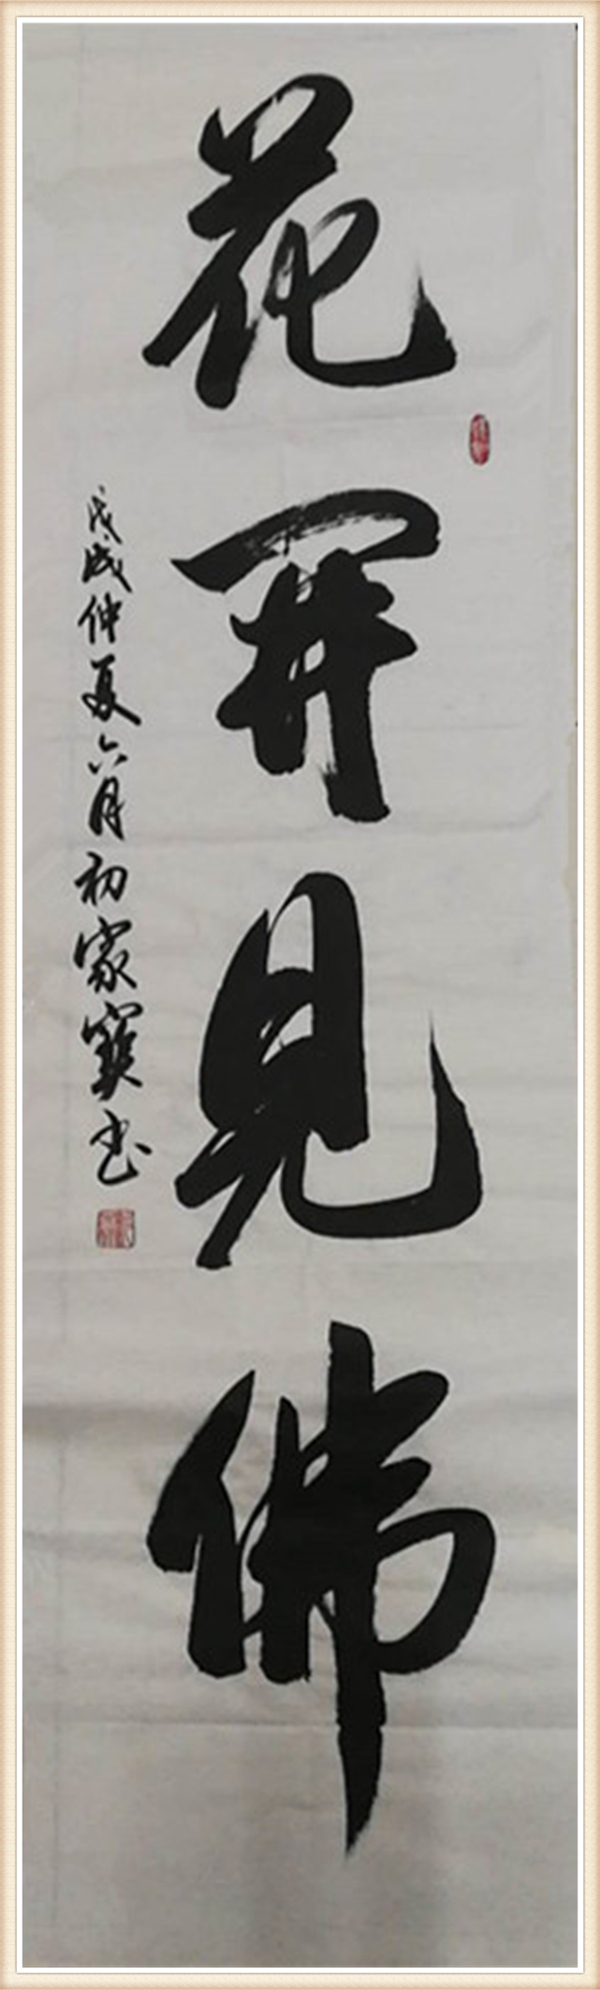 花開見佛
戊戌仲夏六月初家寶书